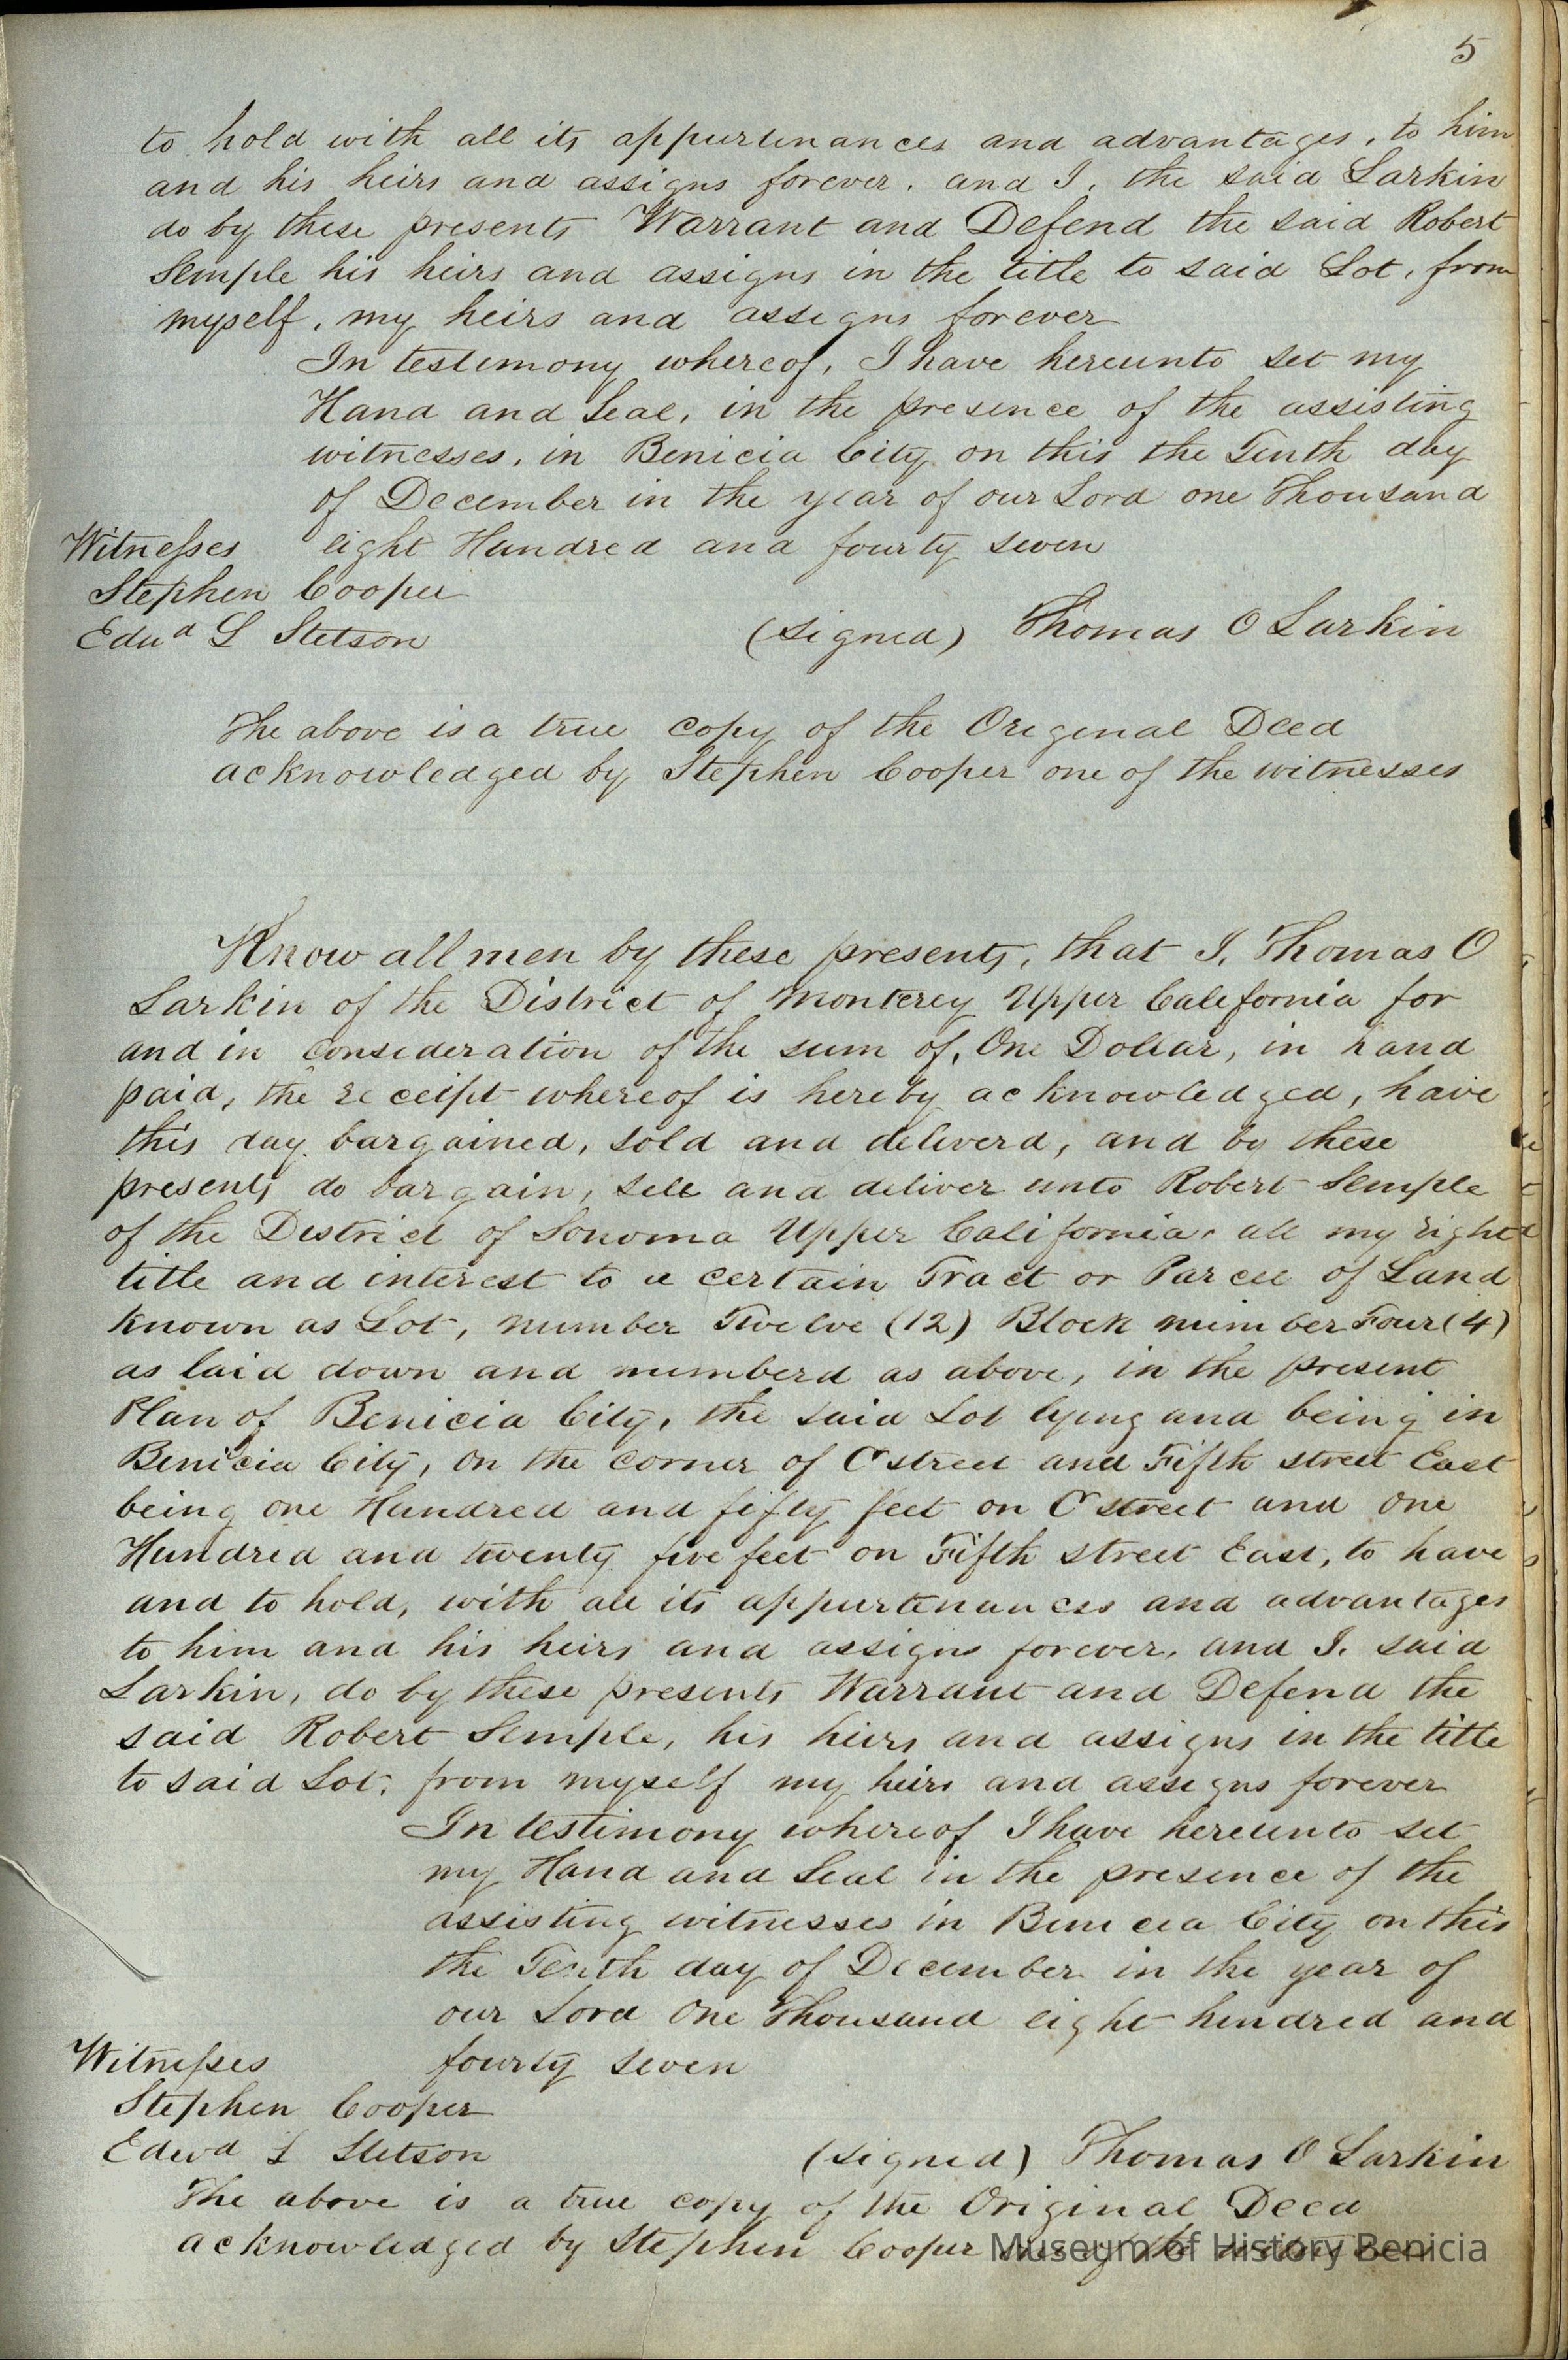 5
to hold with all its appurtenances and advantages, to him
and his heirs and assigns forever. and I, the said Larkin
do by these presents Warrant and Defend the said Robert
Semple his heirs and assigns in the title to said Lot, from
myself, my heirs and assigns forever
In testimony whereof, I have hereunto set my
Hand and Seal, in the presence of the assisting
witnesses, in Benicia City on this the Tenth day
of December in the year of our Lord one Thousand
Witnesses eight Hundred and fourty seven
Stephen Cooper
Edwd L Stetson (signed) Thomas O Larkin
The above is a true copy of the Original Deed
acknowledged by Stephen Cooper one of the witnesses
Know all men by these presents, that I, Thomas O
Larkin of the District of Monterey Upper California for
and in consideration of the sum of, One Dollar, in hand
paid, the receipt whereof is hereby acknowledged, have
this day bargained, sold and deliverd, and by these
presents do bargain, sell and deliver unto Robert Semple
of the District of Sonoma Upper California, all my right
title and interest to a certain Tract or Parcel of Land
known as Lot, number Twelve (12) Block number Four (4)
as laid down and numberd as above, in the present
Plan of Benicia City, the said Lot lying and being in
Benicia City, on the corner of C street and Fifth street East
being one Hundred and fifty feet on C street and one
Hundred and twenty five feet on Fifth street East, to have
and to hold, with all its appurtenances and advantages
to him and his heirs and assigns forever, and I, said
Larkin, do by these presents Warrant and Defend the
said Robert Semple, his heirs and assigns in the title
to said Lot, from myself my heirs and assigns forever
In testimony whereof I have hereunto set
my Hand and Seal in the presence of the
assisting witnesses in Benicia City on this
the Tenth day of December in the year of
our Lord One Thousand eight hundred and
Witnesses fourty seven
Stephen Cooper
Edwd L Stetson (signed) Thomas O Larkin
The above is a true copy of the Original Deed
acknowledged by Stephen Cooper
Museum of History Benicia